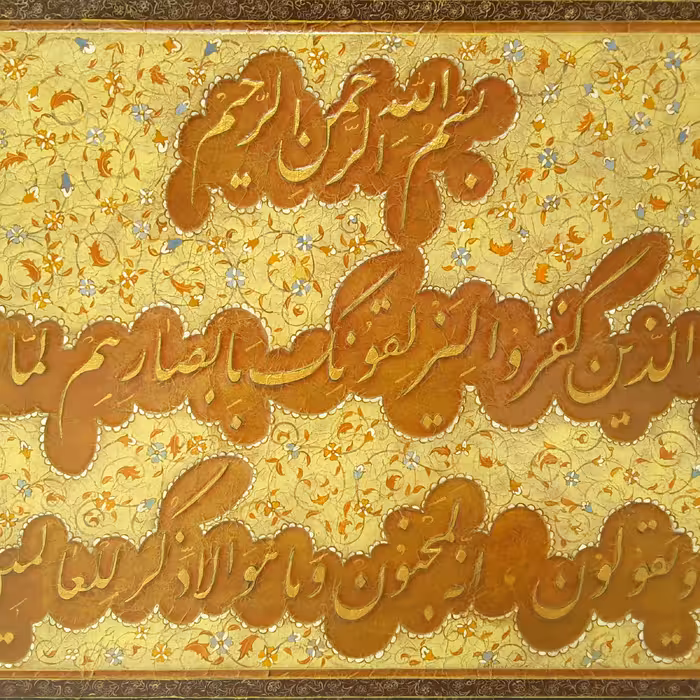 بسم الله الرحمن الرحیم
الذین کفروا لیزلقونک بابصارهم لما
ویقولون انه لمجنون وما هو الا ذکر للعالمین